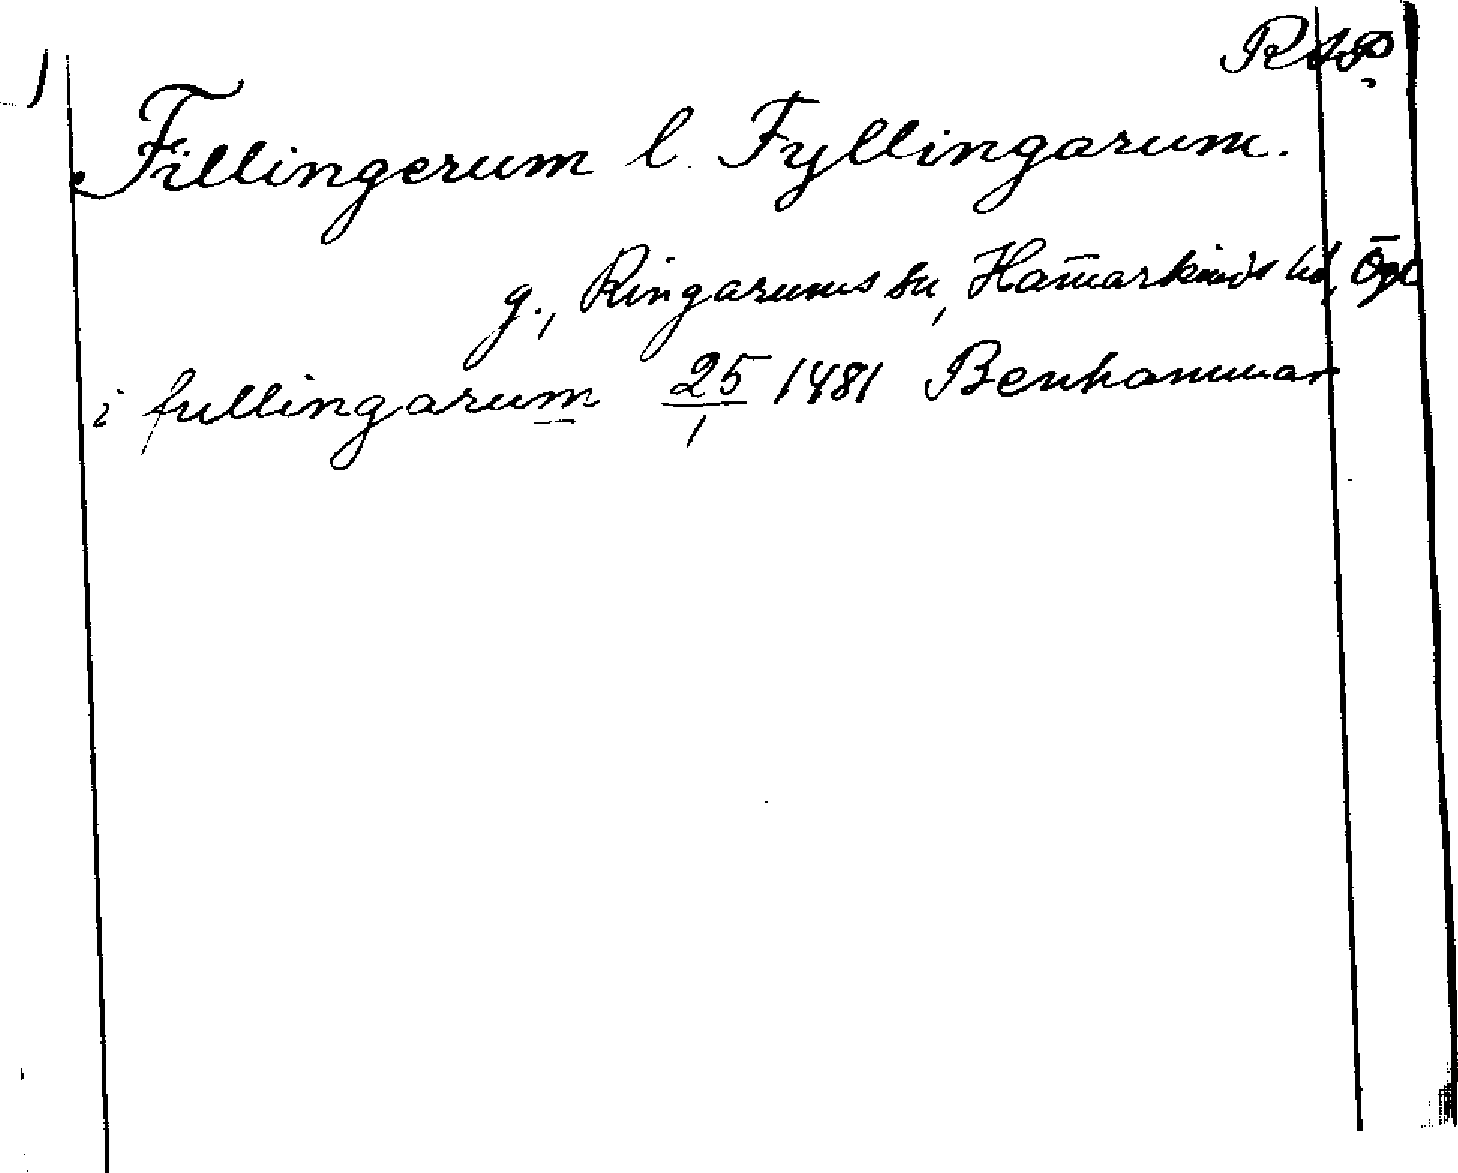 RAP
Fillingerum l. Fyllingarum.
g., Ringarums sn, Ham̄arkinds hd, Ögl
i fullingarum 25/1 1481 Benhammar